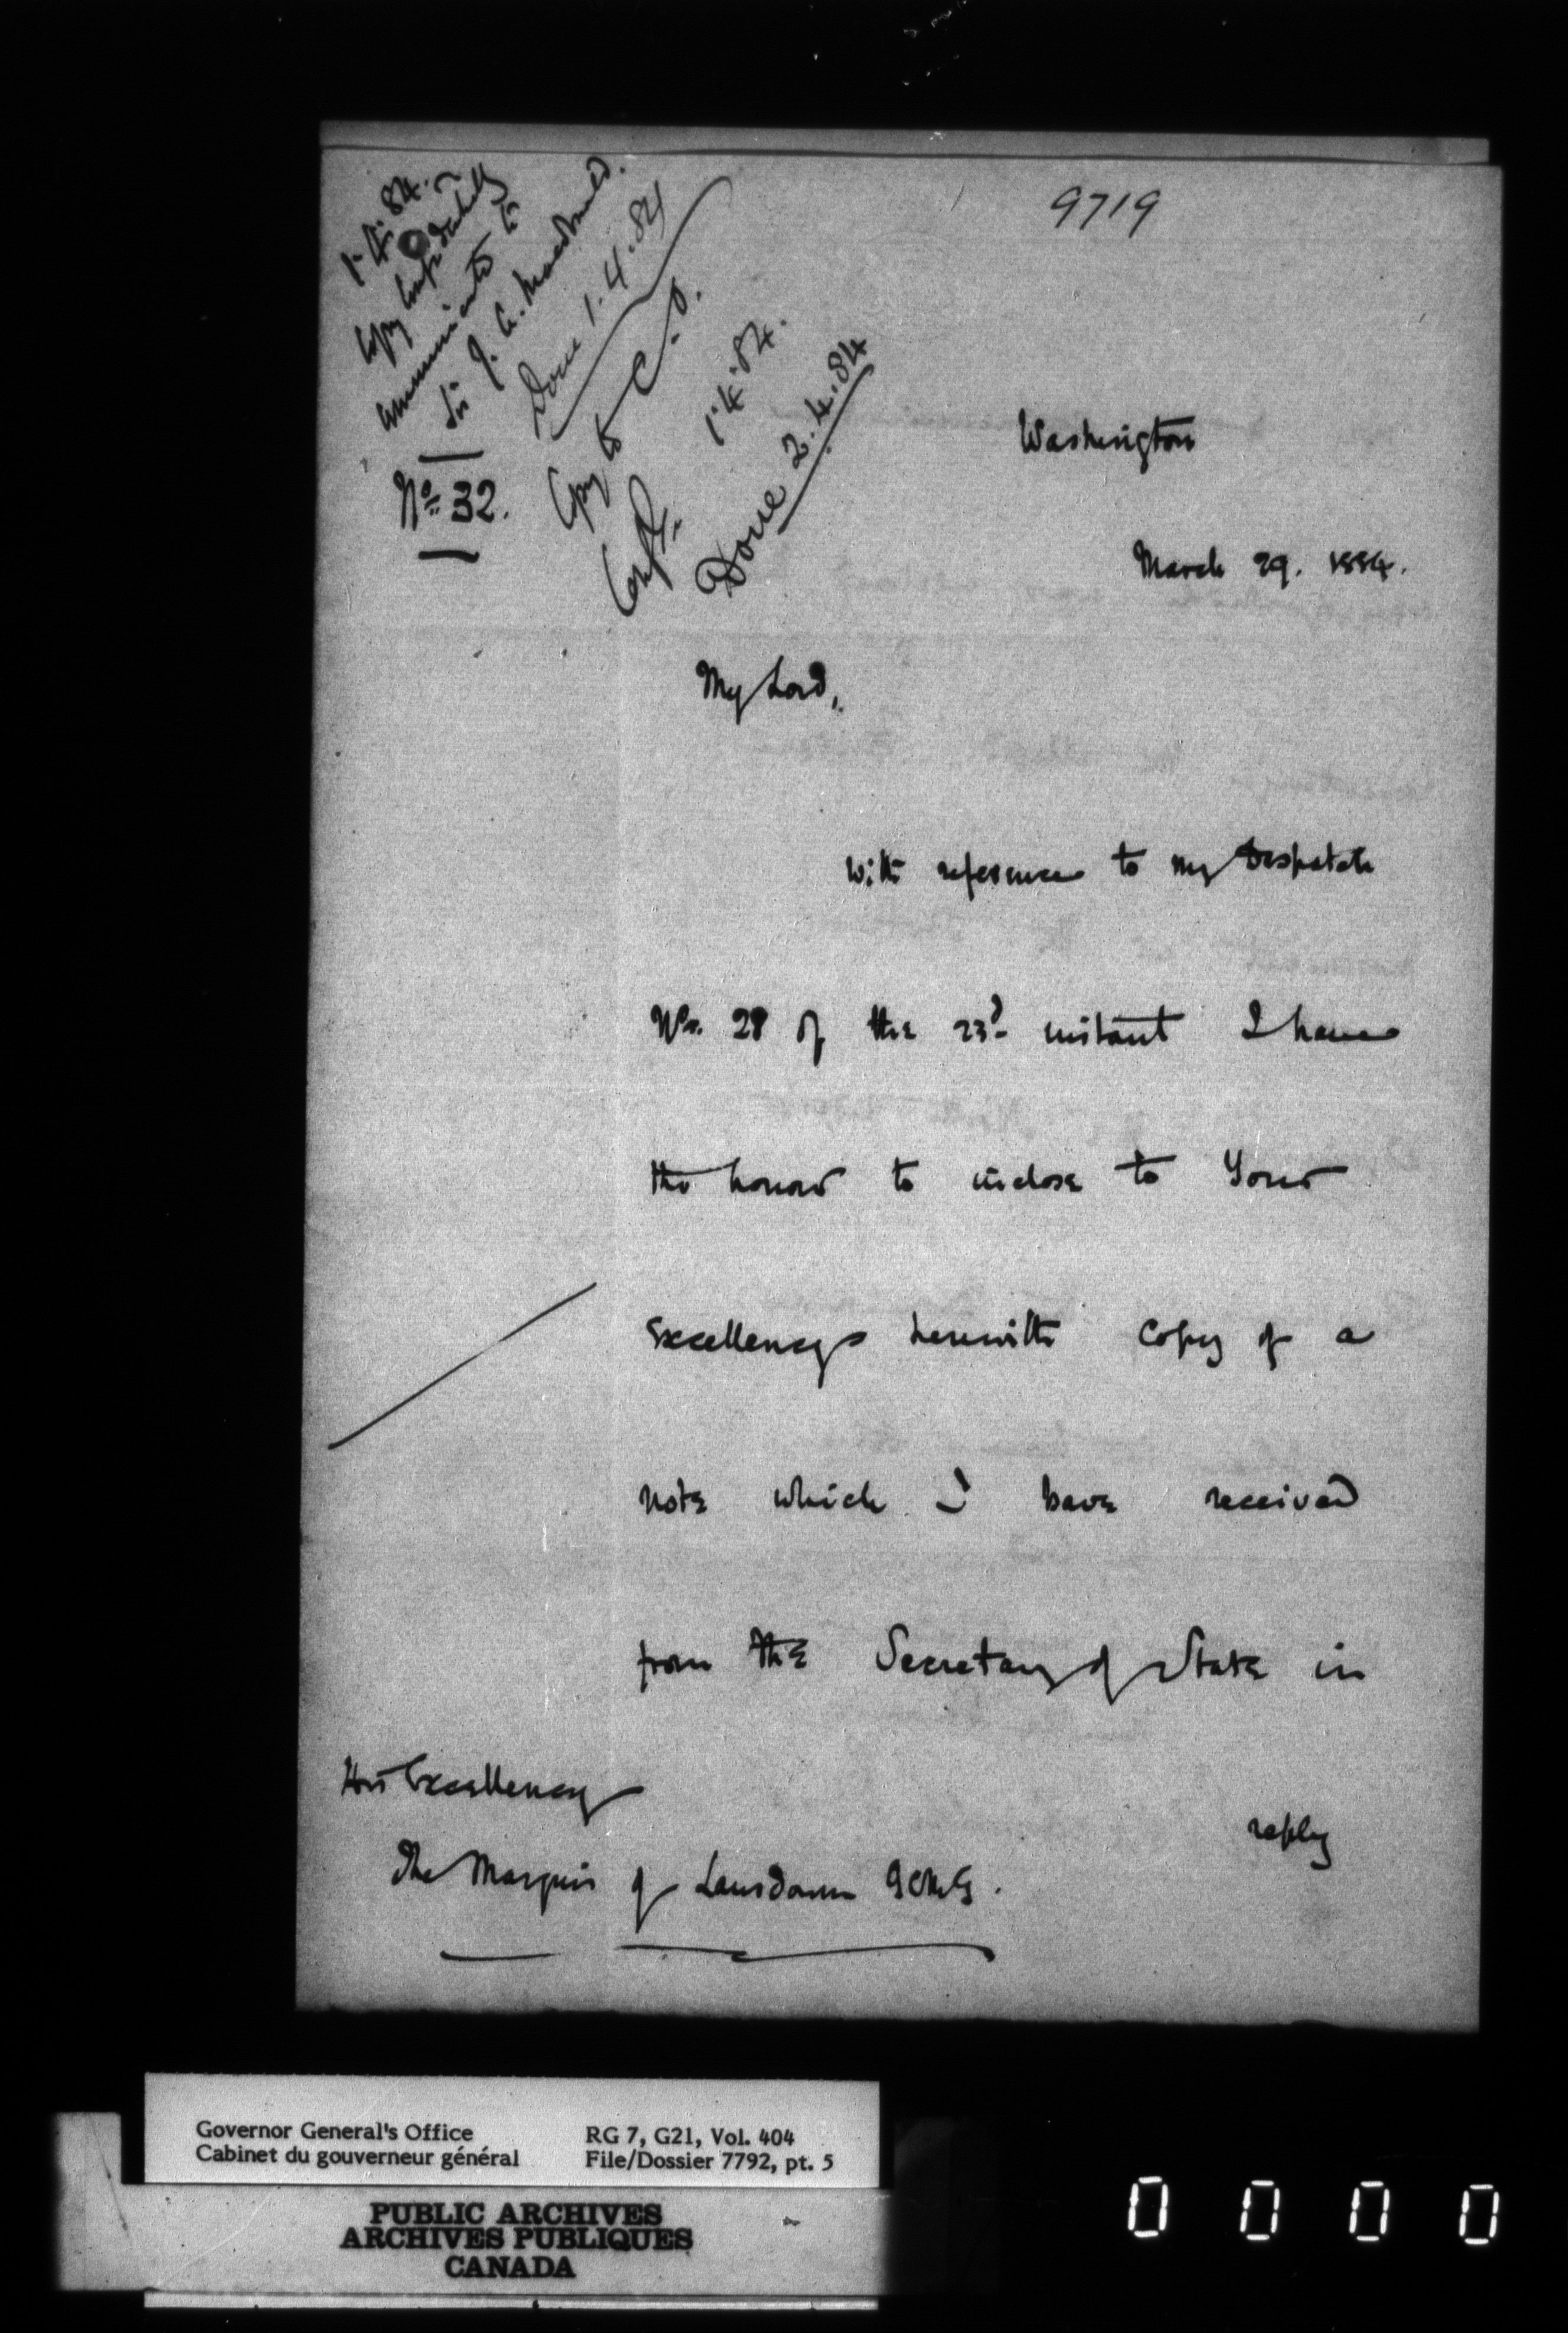 9719
1.4.84.
Copy confidentially
communicated to
Sir J. A. Macdonald.
Done 1.4.84
Copy to C.O.
Confl.
1.4.84.
Done 2.4.84
No. 32.
Washington
March 29. 1884.
My Lord,
With reference to my Despatch
No. 28 of the 23d instant I have
the honor to inclose to Your
Excellency herewith copy of a
note which I have received
from the Secretary of State in
reply
His Excellency
The Marquis of Lansdowne GCMG.
Governor General's Office
Cabinet du gouverneur général
RG 7, G21, Vol. 404
File/Dossier 7792, pt. 5
PUBLIC ARCHIVES
ARCHIVES PUBLIQUES
CANADA
0 0 0 0